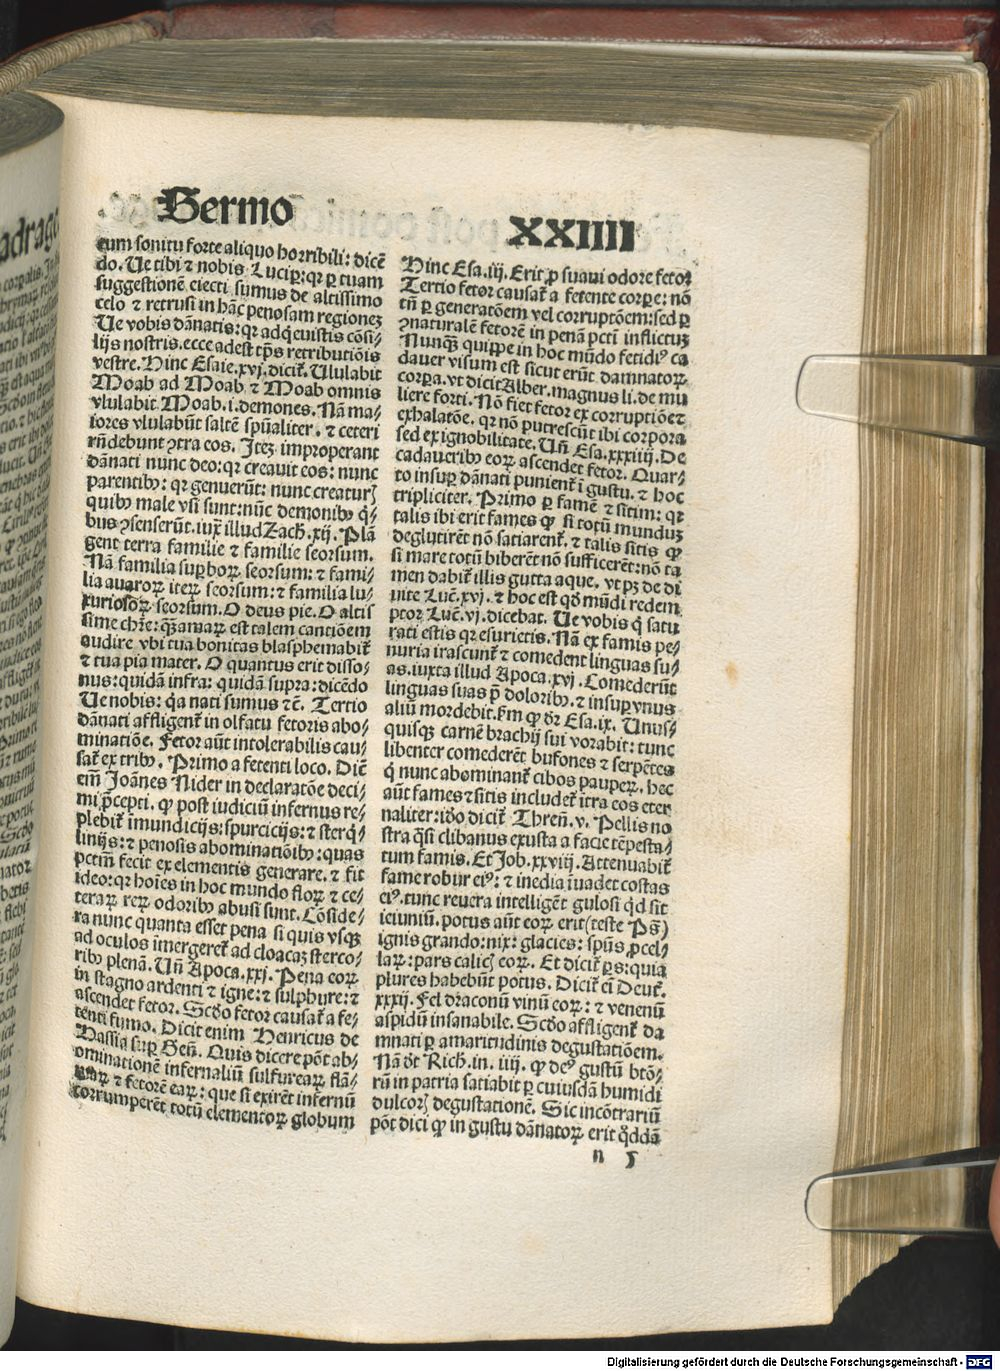 Sermo XXIIII
cum sonitu forte aliquo horribili: dicē
do. Ue tibi ⁊ nobis Lucip̄: qꝛ ꝑ tuam
suggestionē eiecti sumus de altissimo
celo ⁊ retrusi in hāc penosam regionez
Ue vobis dānatis: qꝛ adq̇euistis cōsi⸗
lijs nostris. ecce adest tp̄s retributiōis
vestre. Hinc Esaie. xvj. dicit̄. Ululabit
Moab ad Moab ⁊ Moab omnis
vlulabit Moab. i. demones. Nā ma⸗
iores vlulabūt saltē spūaliter. ⁊ ceteri
rn̄debunt ꝯtra eos. Itez improperant
dānati nunc deo: qꝛ creauit eos: nunc
parentibꝰ: qꝛ genuerūt: nunc creaturꝭ
quibꝰ male vsi sunt: nūc demonibꝰ q̇⸗
bus ꝯsenserūt. iux̄ illud Zach. xij. Plā
gent terra familie ⁊ familie seorsum.
Nā familia supboꝝ seorsum: ⁊ fami⸗
lia auaroꝝ iteꝝ seorsum: ⁊ familia lu⸗
xuriosoꝝ seorsum. O deus pie. O altis
sime chr̄e: q̄ꝫ amaꝝ est talem cantiōem
audire vbi tua bonitas blasphemabit̄
⁊ tua pia mater. O quantus erit disso⸗
nus: quidā infra: quidā supra: dicēdo
Ue nobis: q̇a nati sumus ⁊c̄. Tertio
dānati affligent̄ in olfatu fetoris abo⸗
minatiōe. Fetor aūt intolerabilis cau⸗
sat̄ ex tribꝰ. Primo a fetenti loco. Dic̄
em̄ Joānes Nider in declaratōe deci⸗
mi p̄cepti. ꝙ post iudiciū infernus re⸗
plebit̄ imundicijs: spurcicijs: ⁊ sterq̇⸗
linijs: ⁊ penosis abominatiōibꝰ: quas
pctm̄ fecit ex elementis generare. ⁊ fit
ideo: qꝛ hoīes in hoc mundo floꝝ ⁊ ce⸗
teraꝝ reꝝ odoribꝰ abusi sunt. Cōside⸗
ra nunc quanta esset pena si quis vsqꝫ
ad oculos imergeret̄ ad cloacaꝫ sterco⸗
ribꝰ plenā. Un̄ Apoca. xxj. Pena eoꝝ
in stagno ardenti ⁊ igne: ⁊ sulphure: ⁊
ascendet fetor. Scd̄o fetor causat̄ a fe⸗
tenti fumo. Dicit enim Henricus de
Hassia sup̄ Gen̄. Quis dicere pōt ab⸗
ominationē infernaliū sulfureaꝝ flā⸗
maꝝ ⁊ fetorē eaꝝ: que si exirēt infernū
corrumperēt totū elementoꝝ globum
Hinc Esa. iij. Erit ꝓ suaui odore fetor
Tertio fetor causat̄ a fetente corpe: nō
tn̄ ꝑ generatōem vel corruptōem: sed ꝑ
ꝯnaturalē fetorē in penā pctī inflictuꝫ
Nunqꝫ quippe in hoc mūdo fetidiꝰ ca
dauer visum est sicut erūt damnatoꝝ
corpa. vt dicit Alber. magnus li. de mu
liere forti. Nō fiet fetor ex corruptiōe ⁊
exhalatōe. qꝛ nō putrescūt ibi corpora
sed ex ignobilitate. Un̄ Esa. xxxiiij. De
cadaueribꝰ eoꝝ ascendet fetor. Quar⸗
to insup̄ dānati punient̄ ī gustu. ⁊ hoc
tripliciter. Primo ꝑ famē ⁊ sitim: qꝛ
talis ibi erit fames ꝙ si totū mundus
deglutirēt nō satiarent̄. ⁊ talis sitis ꝙ
si mare totū biberēt nō sufficerēt: nō ta
men dabit̄ illis gutta aque. vt pꝫ de di
uite Luc̄. xvj. ⁊ hoc est qd̄ mūdi redem
ptor Luc̄. vj. dicebat. Ue vobis q̇ satu
rati estis qꝛ esurietis. Nā ex famis pe⸗
nuria irascunt̄ ⁊ comedent linguas su⸗
as. iuxta illud Apoca. xvj. Comederūt
linguas suas p̄ doloribꝰ. ⁊ insup̄ vnus
aliū mordebit. fm̄ ꝙ dr̄ Esa. ix. Unus⸗
quisqꝫ carnē brachij sui vorabit: tunc
libenter comederēt bufones ⁊ serpētes
q̇ nunc abominant̄ cibos pauperꝝ. hec
aūt fames ⁊ sitis includet̄ ītra eos eter
naliter: iđo dicit̄ Thren̄. v. Pellis no
stra q̄si clibanus exusta a facie tēpesta⸗
tum famis. Et Job. xxviij. Attenuabit̄
fame robur eiꝰ: ⁊ inedia īuadet costas
eiꝰ. tunc reuera intelligēt gulosi qd̄ sit
ieiuniū. potus aūt eoꝝ erit (teste Ps̄)
ignis grando: nix: glacies: spūs ꝓcel⸗
laꝝ: pars calicꝭ eoꝝ. Et dicit̄ ꝑs: quia
plures habebūt potus. Dicit̄ ei Deut̄.
xxxij. Fel draconū vinū eoꝝ: ⁊ venenū
aspidū insanabile. Scd̄o affligent̄ da
mnati ꝑ amaritudinis degustatiōem.
Nā dt̄ Rich. in. iiij. ꝙ deꝰ gustū btō⸗
rū in patria satiabit ꝑ cuiusdā humidi
dulcorꝭ degustationē. Sic incōtrariū
pōt dici ꝙ in gustu dānatoꝝ erit q̇ddā
n 5
Digitalisierung gefördert durch die Deutsche Forschungsgemeinschaft - DFG